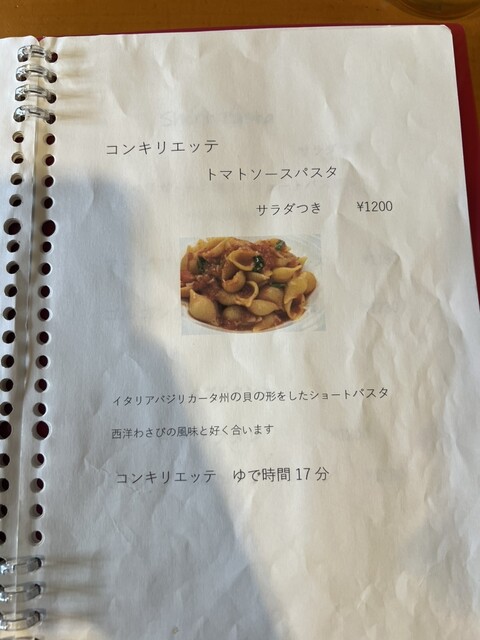 コンキリエッテ
トマトソースパスタ
サラダつき ¥1200
イタリアバジリカータ州の貝の形をしたショートパスタ
西洋わさびの風味と好く合います
コンキリエッテ ゆで時間 17 分